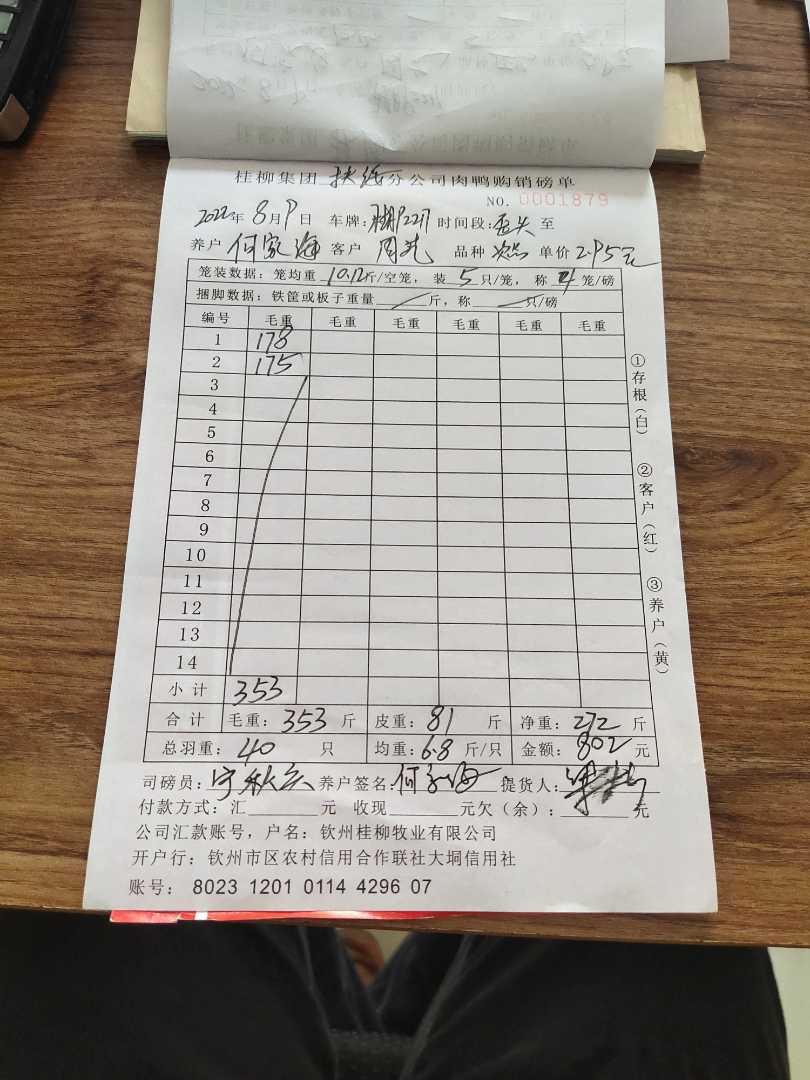 桂柳集团 扶绥 分公司肉鸭购销磅单
NO. 0001879
2022年 8月9日 车牌: 2217 时间段: 至
养户 何家海 客户 周 品种 次品 单价 2.95元
笼装数据: 笼均重 10.12斤/空笼, 装 5 只/笼, 称 4 笼/磅
捆脚数据: 铁筐或板子重量 斤, 称 只/磅
编号 毛重 毛重 毛重 毛重 毛重 毛重
1 178
2 175
3
4
5
6
7
8
9
10
11
12
13
14
小计 353
合计 毛重: 353 斤 皮重: 81 斤 净重: 272 斤
总羽重: 40 只 均重: 6.8 斤/只 金额: 802 元
司磅员: 宁秋 养户签名: 何家海 提货人:
付款方式: 汇 元 收现 元欠(余): 元
公司汇款账号, 户名: 钦州桂柳牧业有限公司
开户行: 钦州市区农村信用合作联社大垌信用社
账号: 8023 1201 0114 4296 07
①存根(白)
②客户(红)
③养户(黄)